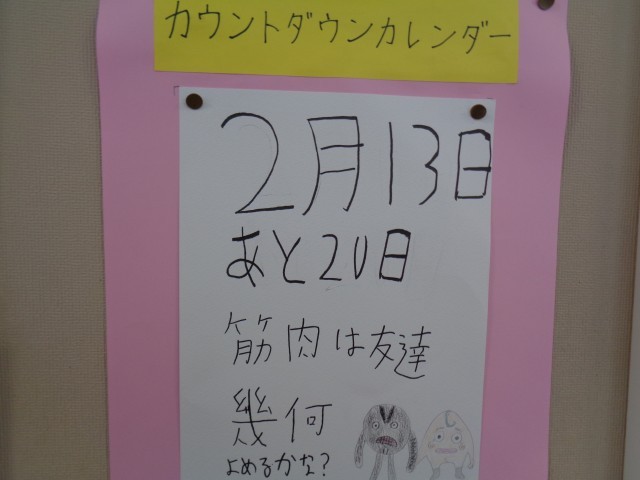 カウントダウンカレンダー
2月13日
あと20日
筋肉は友達
幾何
よめるかな?